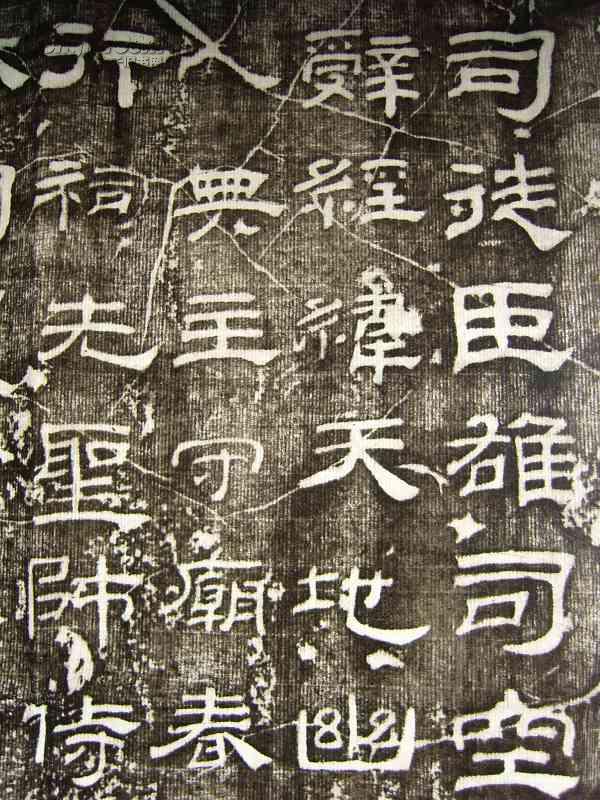 司徒臣雄司空
辭經緯天地幽
人典主守廟春
行祠先聖師侍